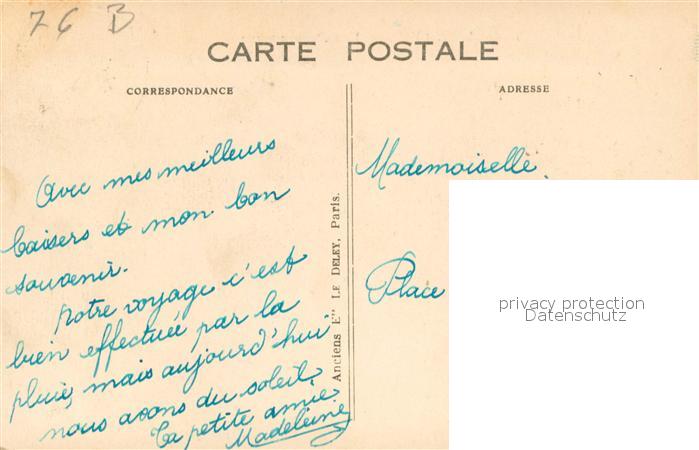 76 B
CARTE POSTALE
CORRESPONDANCE
ADRESSE
Avec mes meilleurs
baisers et mon bon
souvenir.
Notre voyage c'est
bien effectuée par la
pluie, mais aujourd'hui
nous avons du soleil.
Ta petite amie
Madeleine
Anciens Etˢ LE DELEY, Paris.
Mademoiselle
Place
privacy protection
Datenschutz